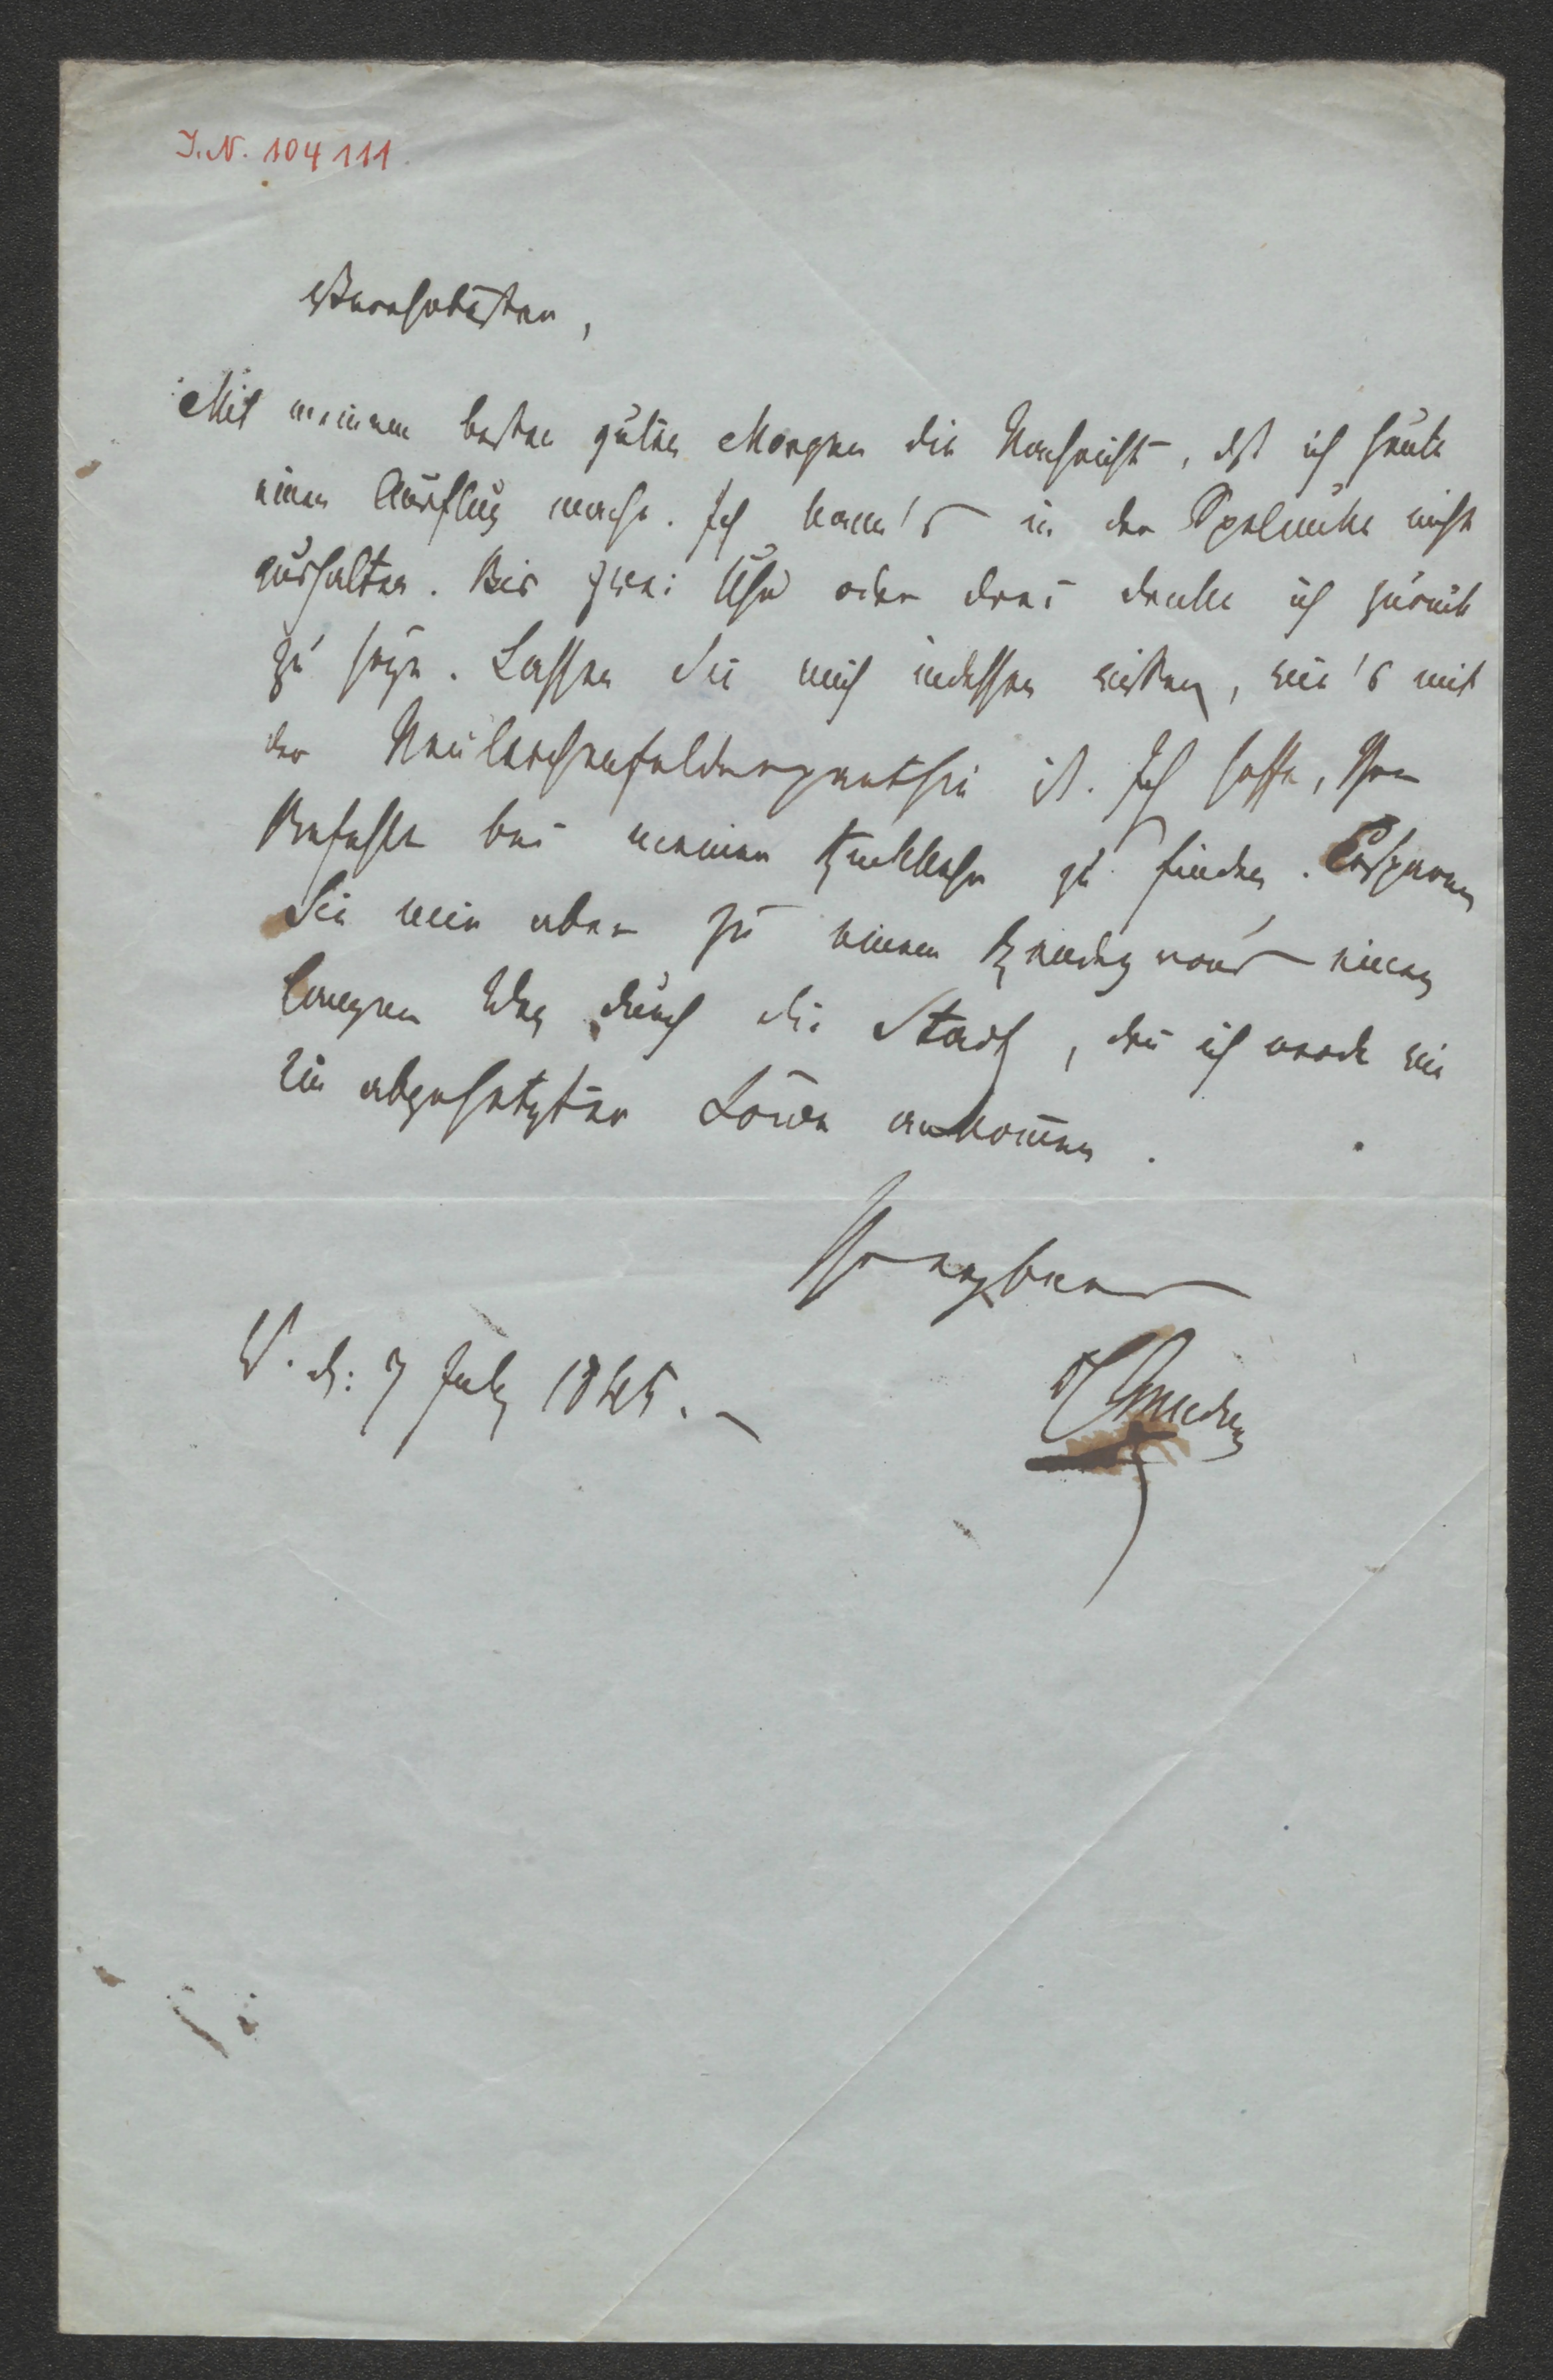 I.N. 104111
Verehrtester,
Mit meinem besten guten Morgen die Nachricht, dß ich heute
einen Ausflug mache. Ich kann's in der Spelunke nicht
aushalten. Bis zwei Uhr oder drei denke ich zurück
zu seyn. Lassen Sie mich indessen wissen, wie's mit
der Neulerchenfelderparthie ist. Ich hoffe, Ihre
Befehle bei meiner Rückkehr zu finden. Ersparen
Sie mir aber zu einem Rendezvous einen
langen Weg durch die Stadt, den ich werde wie
ein abgehetzter Löwe ankommen.
Ihr ergebener
W. d: 7 July 1845.